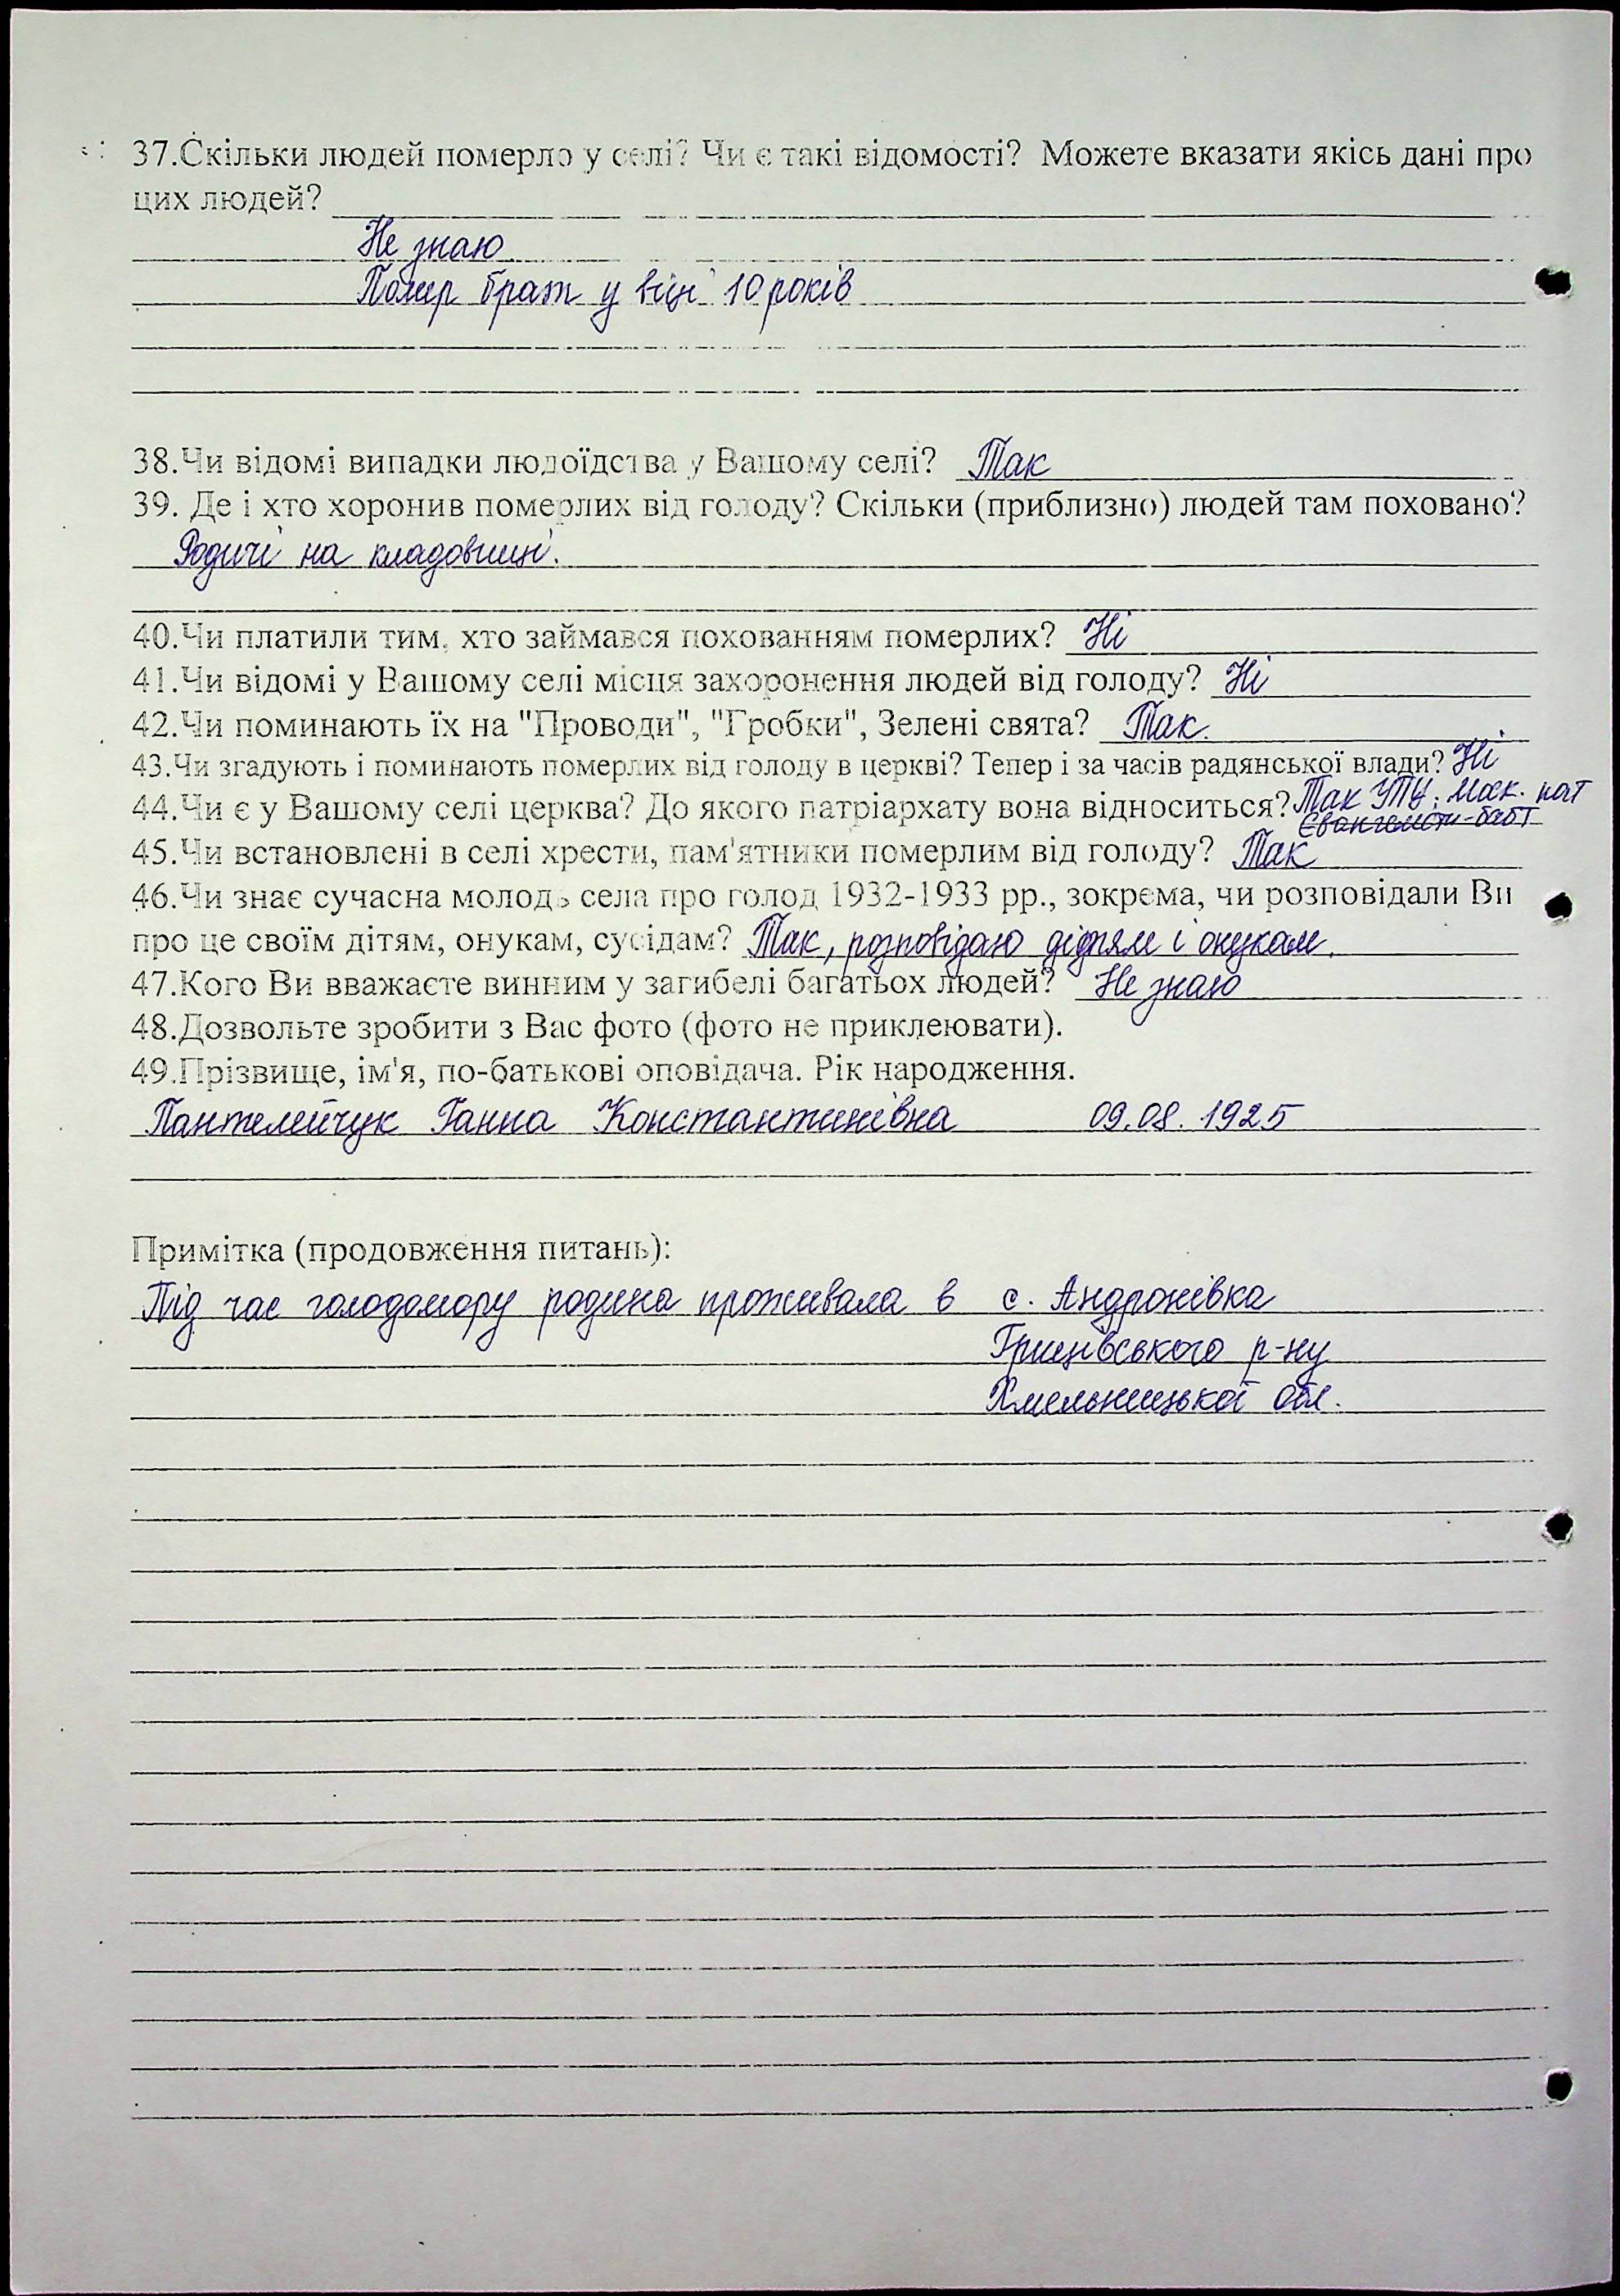 37.Скільки людей померло у селі? Чи є такі відомості? Можете вказати якісь дані про
цих людей?
Не знаю
Помер брат у віці 10 років
38.Чи відомі випадки людоїдства у Вашому селі? Так
39. Де і хто хоронив померлих від голоду? Скільки (приблизно) людей там поховано?
Родичі на кладовищі.
40.Чи платили тим, хто займався похованням померлих? Ні
41.Чи відомі у Вашому селі місця захоронення людей від голоду? Ні
42.Чи поминають їх на "Проводи", "Гробки", Зелені свята? Так.
43.Чи згадують і поминають померлих від голоду в церкві? Тепер і за часів радянської влади? Ні
44.Чи є у Вашому селі церква? До якого патріархату вона відноситься? Так Моск. пат
Євангелисти-бабт
45.Чи встановлені в селі хрести, пам'ятники померлим від голоду? Так
46.Чи знає сучасна молодь села про голод 1932-1933 рр., зокрема, чи розповідали Ви
про це своїм дітям, онукам, сусідам? Так, розповідаю дітям і онукам.
47.Кого Ви вважаєте винним у загибелі багатьох людей? Не знаю
48.Дозвольте зробити з Вас фото (фото не приклеювати).
49.Прізвище, ім'я, по-батькові оповідача. Рік народження.
Пантелейчук Ганна Константинівна 09.08.1925
Примітка (продовження питань):
Під час голодомору родина проживала в с. Андронівка
Грицівського р-ну
Хмельницької обл.